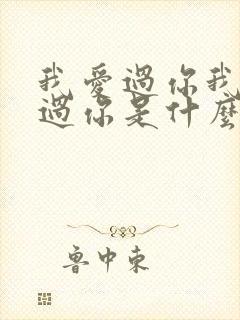 我愛過你我
過你是什麼
魯中東